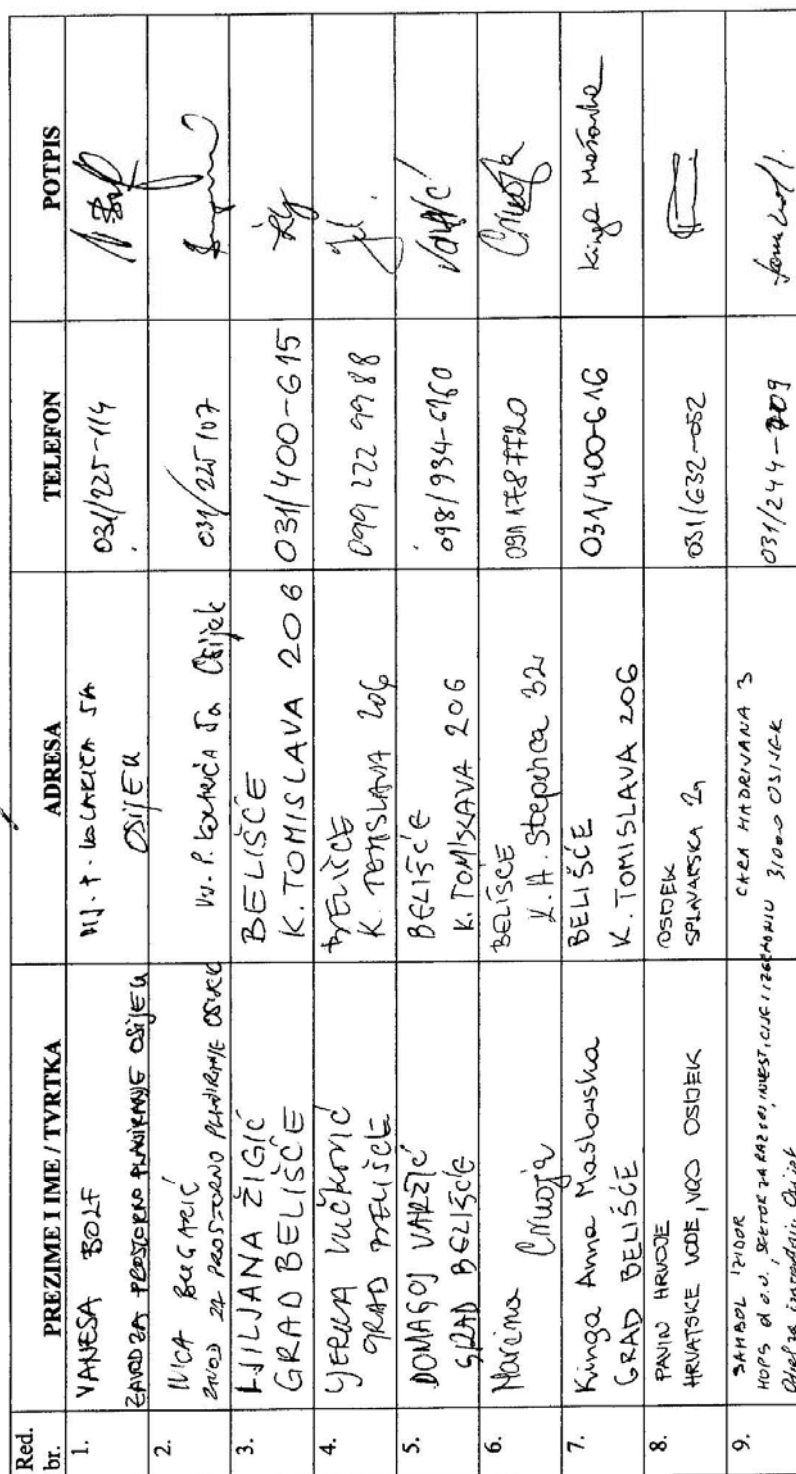 Red. br. PREZIME I IME / TVRTKA ADRESA TELEFON POTPIS
1. VANESA BOLF
ZAVOD ZA PROSTORNO PLANIRANJE OSIJEK
5A
OSIJEK
031/225-114
2. IVICA BUGARIĆ
ZAVOD ZA PROSTORNO PLANIRANJE
5a Osijek
031/225 107
3. LJILJANA ŽIGIĆ
GRAD BELIŠĆE
BELIŠĆE
K. TOMISLAVA 206
031/400-615
4. JERKA VUČKOVIĆ
GRAD BELIŠĆE
BELIŠĆE
K. TOMISLAVA 206
099 222 9988
5. DOMAGOJ VARŽIĆ
GRAD BELIŠĆE
BELIŠĆE
K. TOMISLAVA 206
098/934-6160
Varžić
6. Crnoja
BELIŠĆE
K. A. Stepinca 32
091 178 7720
Crnoja
7. Kinga Anna Masłowska
GRAD BELIŠĆE
BELIŠĆE
K. TOMISLAVA 206
031/400-616
Kinga
8. PAVIN HRVOJE
HRVATSKE VODE, VGO OSIJEK
OSIJEK
SPLAVARSKA 2a
031/632-052
9. SAMBOL IZIDOR
HOPS d.o.o., SEKTOR ZA RAZVOJ, INVEST, I IZGRADNJU
Odjel za izgradnju Osijek
CARA HADRIJANA 3
31000 OSIJEK
031/244-